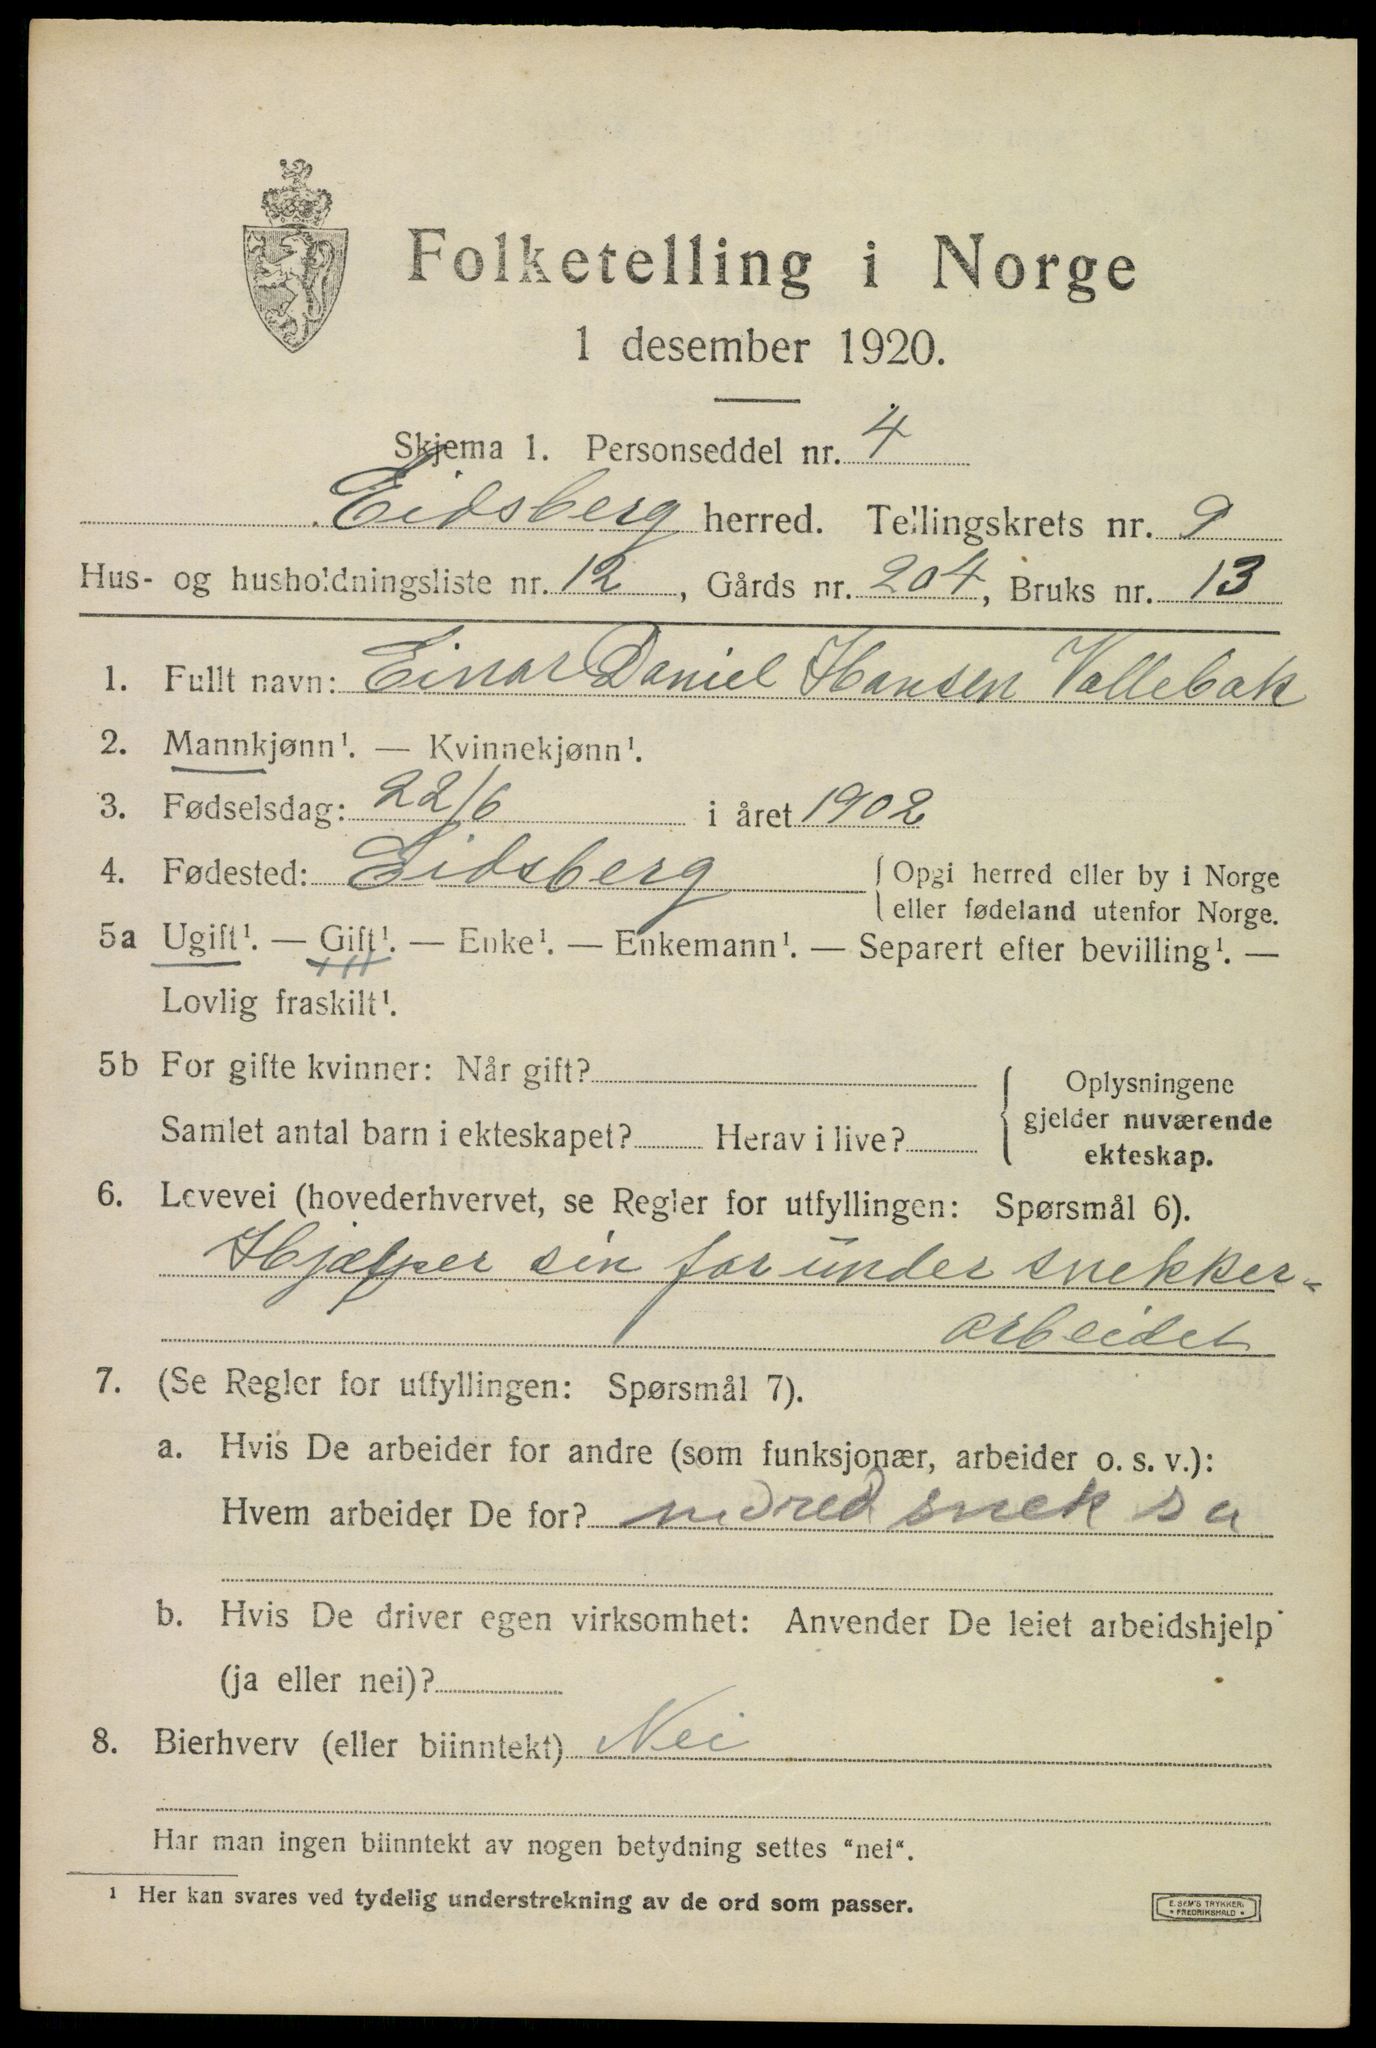 Folketelling i Norge
1 desember 1920.
Skjema 1. Personseddel nr. 4
Eidsberg herred. Tellingskrets nr. 9
Hus- og husholdningsliste nr. 12, Gårds nr. 204, Bruks nr. 13
1. Fullt navn: Einar Daniel Hansen Vallebak
2. Mannkjønn¹. — Kvinnekjønn¹.
3. Fødselsdag: 22/6 i året 1902
4. Fødested: Eidsberg { Opgi herred eller by i Norge
eller fødeland utenfor Norge.
5a Ugift¹. — Gift¹. — Enke¹. — Enkemann¹. — Separert efter bevilling¹. —
Lovlig fraskilt¹.
5b For gifte kvinner: Når gift?
Samlet antal barn i ekteskapet? Herav i live?
Oplysningene
gjelder nuværende
ekteskap.
6. Levevei (hovederhvervet, se Regler for utfyllingen: Spørsmål 6).
Hjælper sin far under snekker-
arbeidet
7. (Se Regler for utfyllingen: Spørsmål 7).
a. Hvis De arbeider for andre (som funksjonær, arbeider o. s. v.):
Hvem arbeider De for? snek
b. Hvis De driver egen virksomhet: Anvender De leiet arbeidshjelp
(ja eller nei)?
8. Bierhverv (eller biinntekt) Nei
Har man ingen biinntekt av nogen betydning settes "nei".
¹ Her kan svares ved tydelig understrekning av de ord som passer.
E. SEM'S TRYKKERI
FREDRIKSHALD